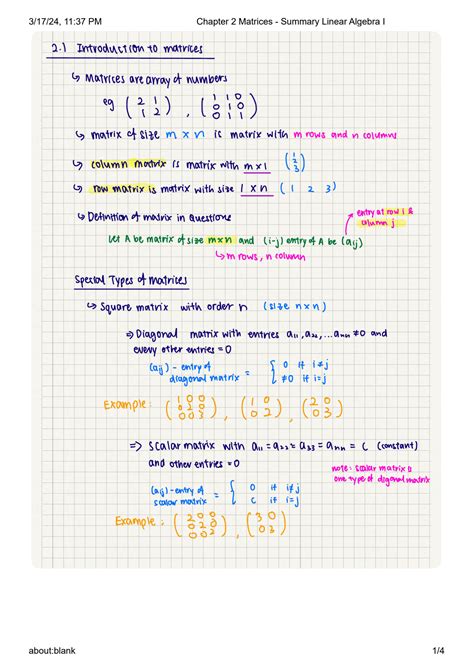 3/17/24, 11:37 PM Chapter 2 Matrices - Summary Linear Algebra I
2.1 Introduction to matrices
↳ Matrices are array of numbers
eg ( 2 1 ; 1 2 ) , ( 1 1 0 ; 0 1 0 ; 0 1 1 )
↳ matrix of size m × n is matrix with m rows and n columns
↳ column matrix is matrix with m×1 ( 1 ; 2 ; 3 )
↳ row matrix is matrix with size 1 × n ( 1 2 3 )
entry at row i &
column j
↳ Definition of matrix in Questions
Let A be matrix of size m×n and (i-j) entry of A be (aij)
↳ m rows, n column
Special Types of matrices
↳ Square matrix with order n (size n×n)
⇒ Diagonal matrix with entries a11, a22, ... ann ≠ 0 and
every other entries = 0
(aij) - entry of
diagonal matrix = { 0 if i≠j ; ≠0 if i=j
Example : ( 1 0 0 ; 0 2 0 ; 0 0 3 ) , ( 1 0 ; 0 2 ) , ( 2 0 ; 0 3 )
⇒ Scalar matrix with a11 = a22 = a33 = ann = C (constant)
and other entries = 0
note : scalar matrix is
one type of diagonal matrix
(aij) - entry of
scalar matrix = { 0 if i≠j ; c if i=j
Example : ( 2 0 0 ; 0 2 0 ; 0 0 2 ) , ( 3 0 ; 0 3 )
about:blank 1/4